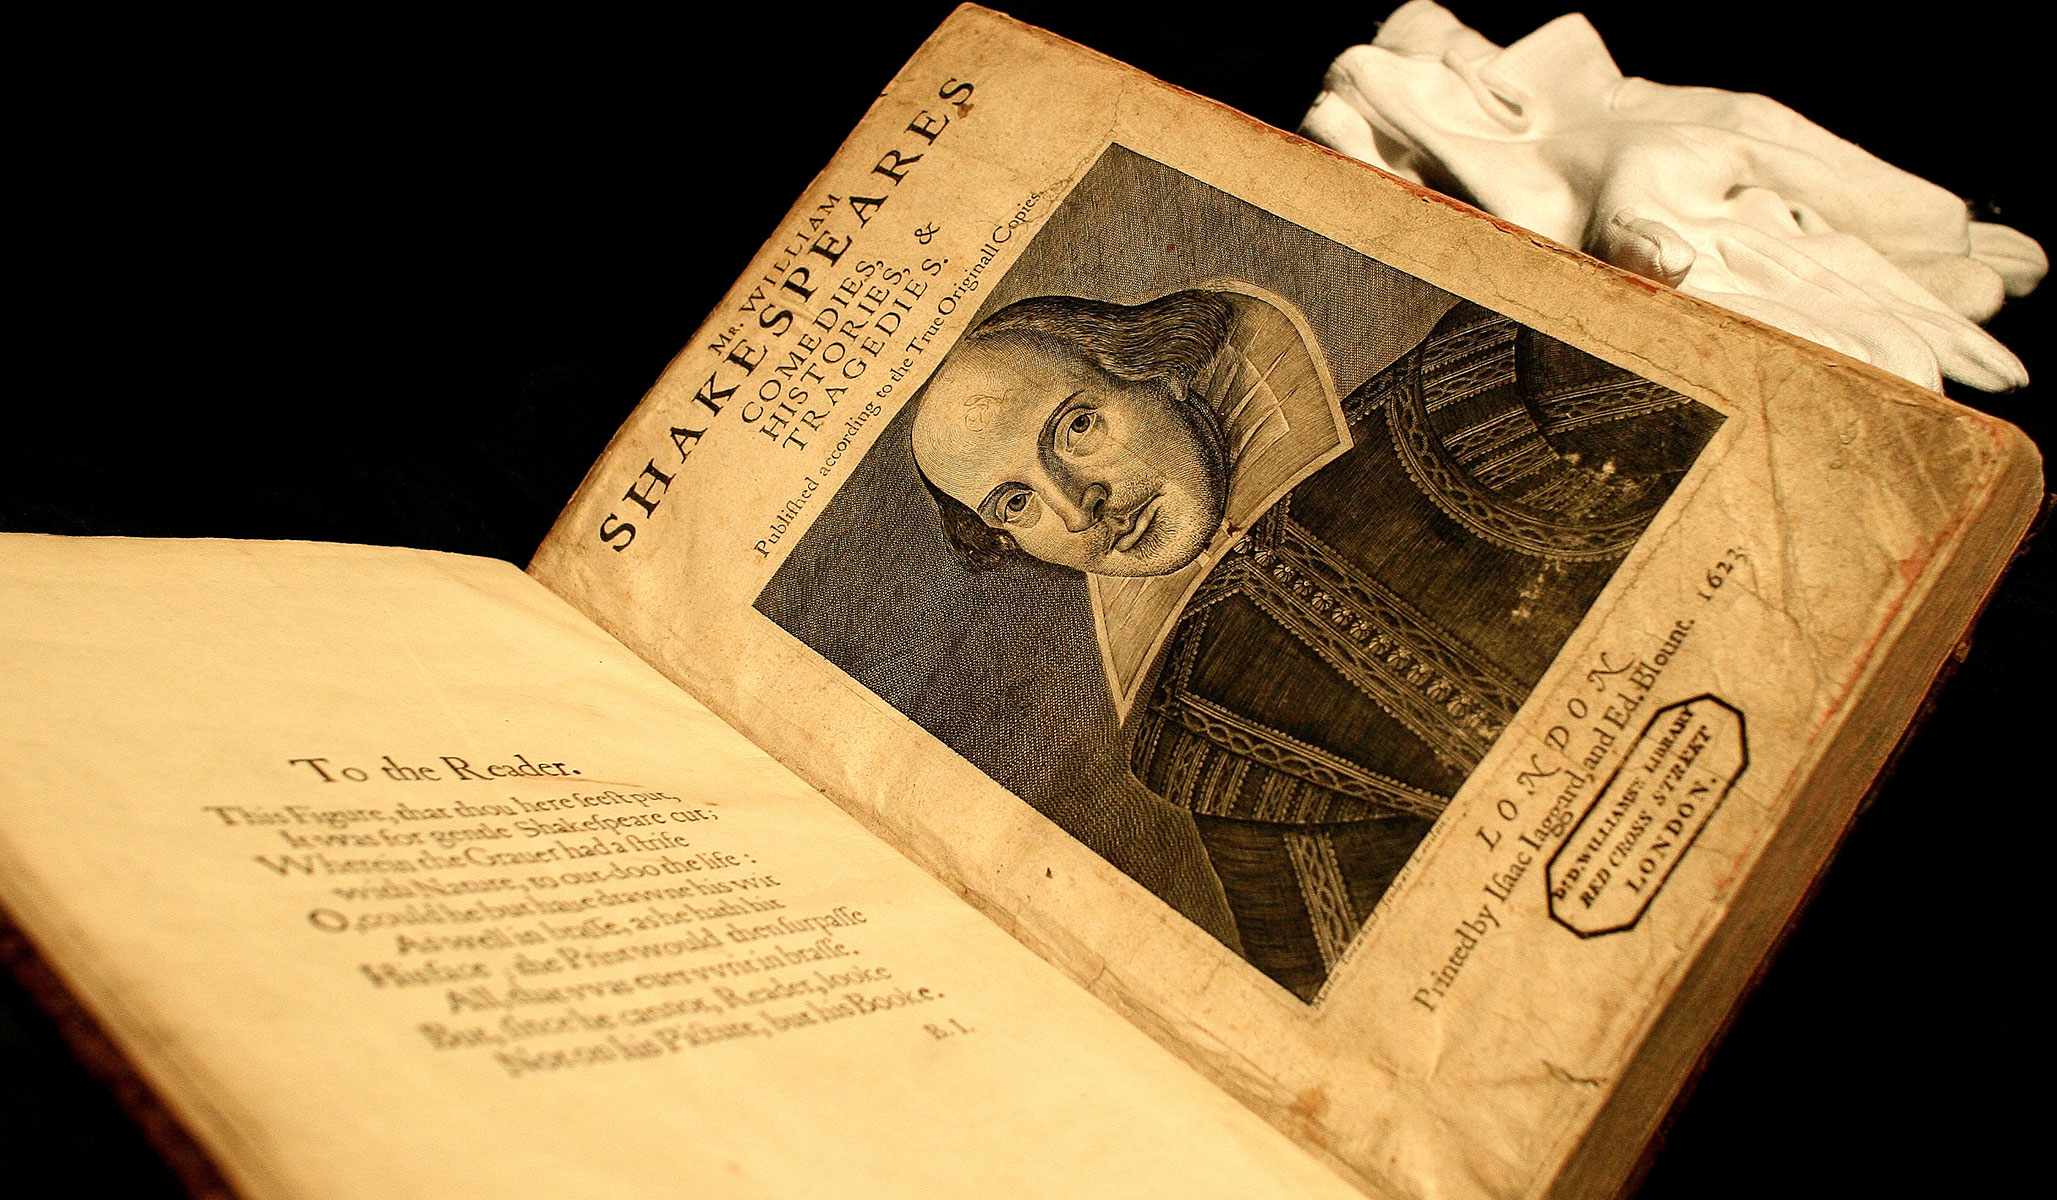 To the Reader.
This Figure, that thou here seeſt put,
It was for gentle Shakeſpeare cut;
Wherein the Grauer had a ſtrife
with Nature, to out-doo the life :
O, could he but haue drawne his wit
As well in braſſe, as he hath hit
His face , the Print would then ſurpaſſe
All, that vvas euer vvrit in braſſe.
But, ſince he cannot, Reader, looke
Not on his Picture, but his Booke.
B. I.
MR. WILLIAM
SHAKESPEARES
COMEDIES,
HISTORIES, &
TRAGEDIES.
Publiſhed according to the True Originall Copies.
LONDON
Printed by Iſaac Iaggard, and Ed. Blount. 1623
DR. D. WILLIAMS'S LIBRARY
RED CROSS STREET
LONDON.